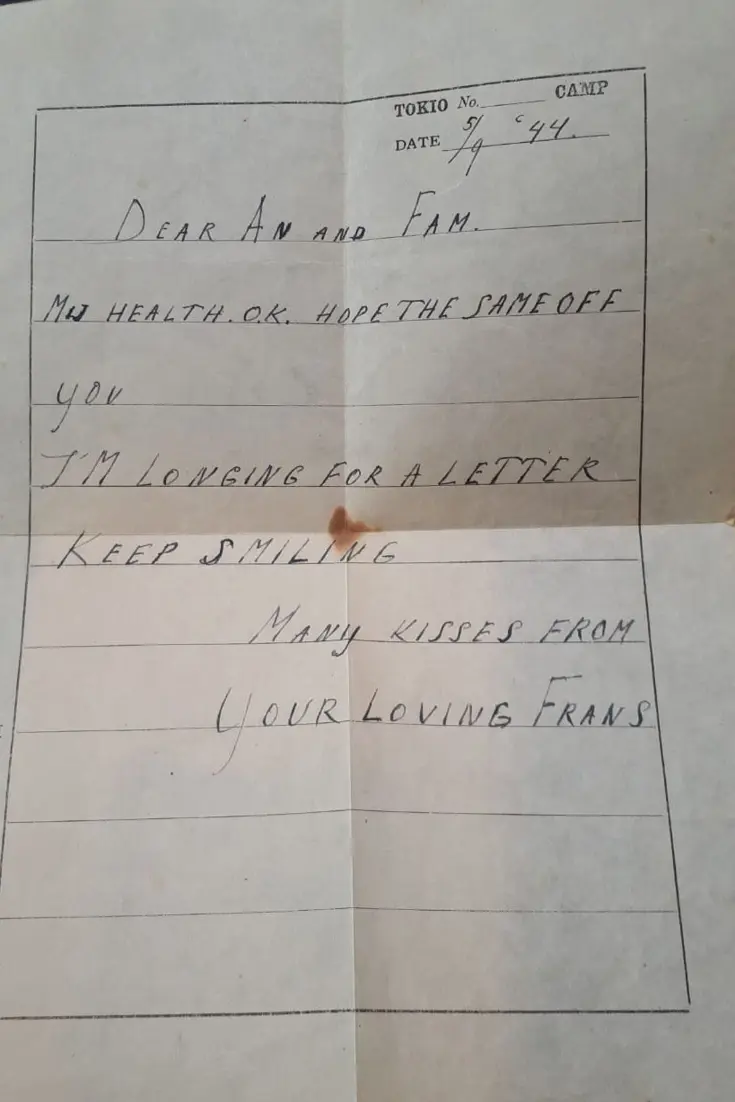 TOKIO No. CAMP
DATE 5/9 '44.
DEAR AN AND FAM.
MY HEALTH. O.K. HOPE THE SAME OFF
YOU
I'M LONGING FOR A LETTER
KEEP SMILING
MANY KISSES FROM
YOUR LOVING FRANS